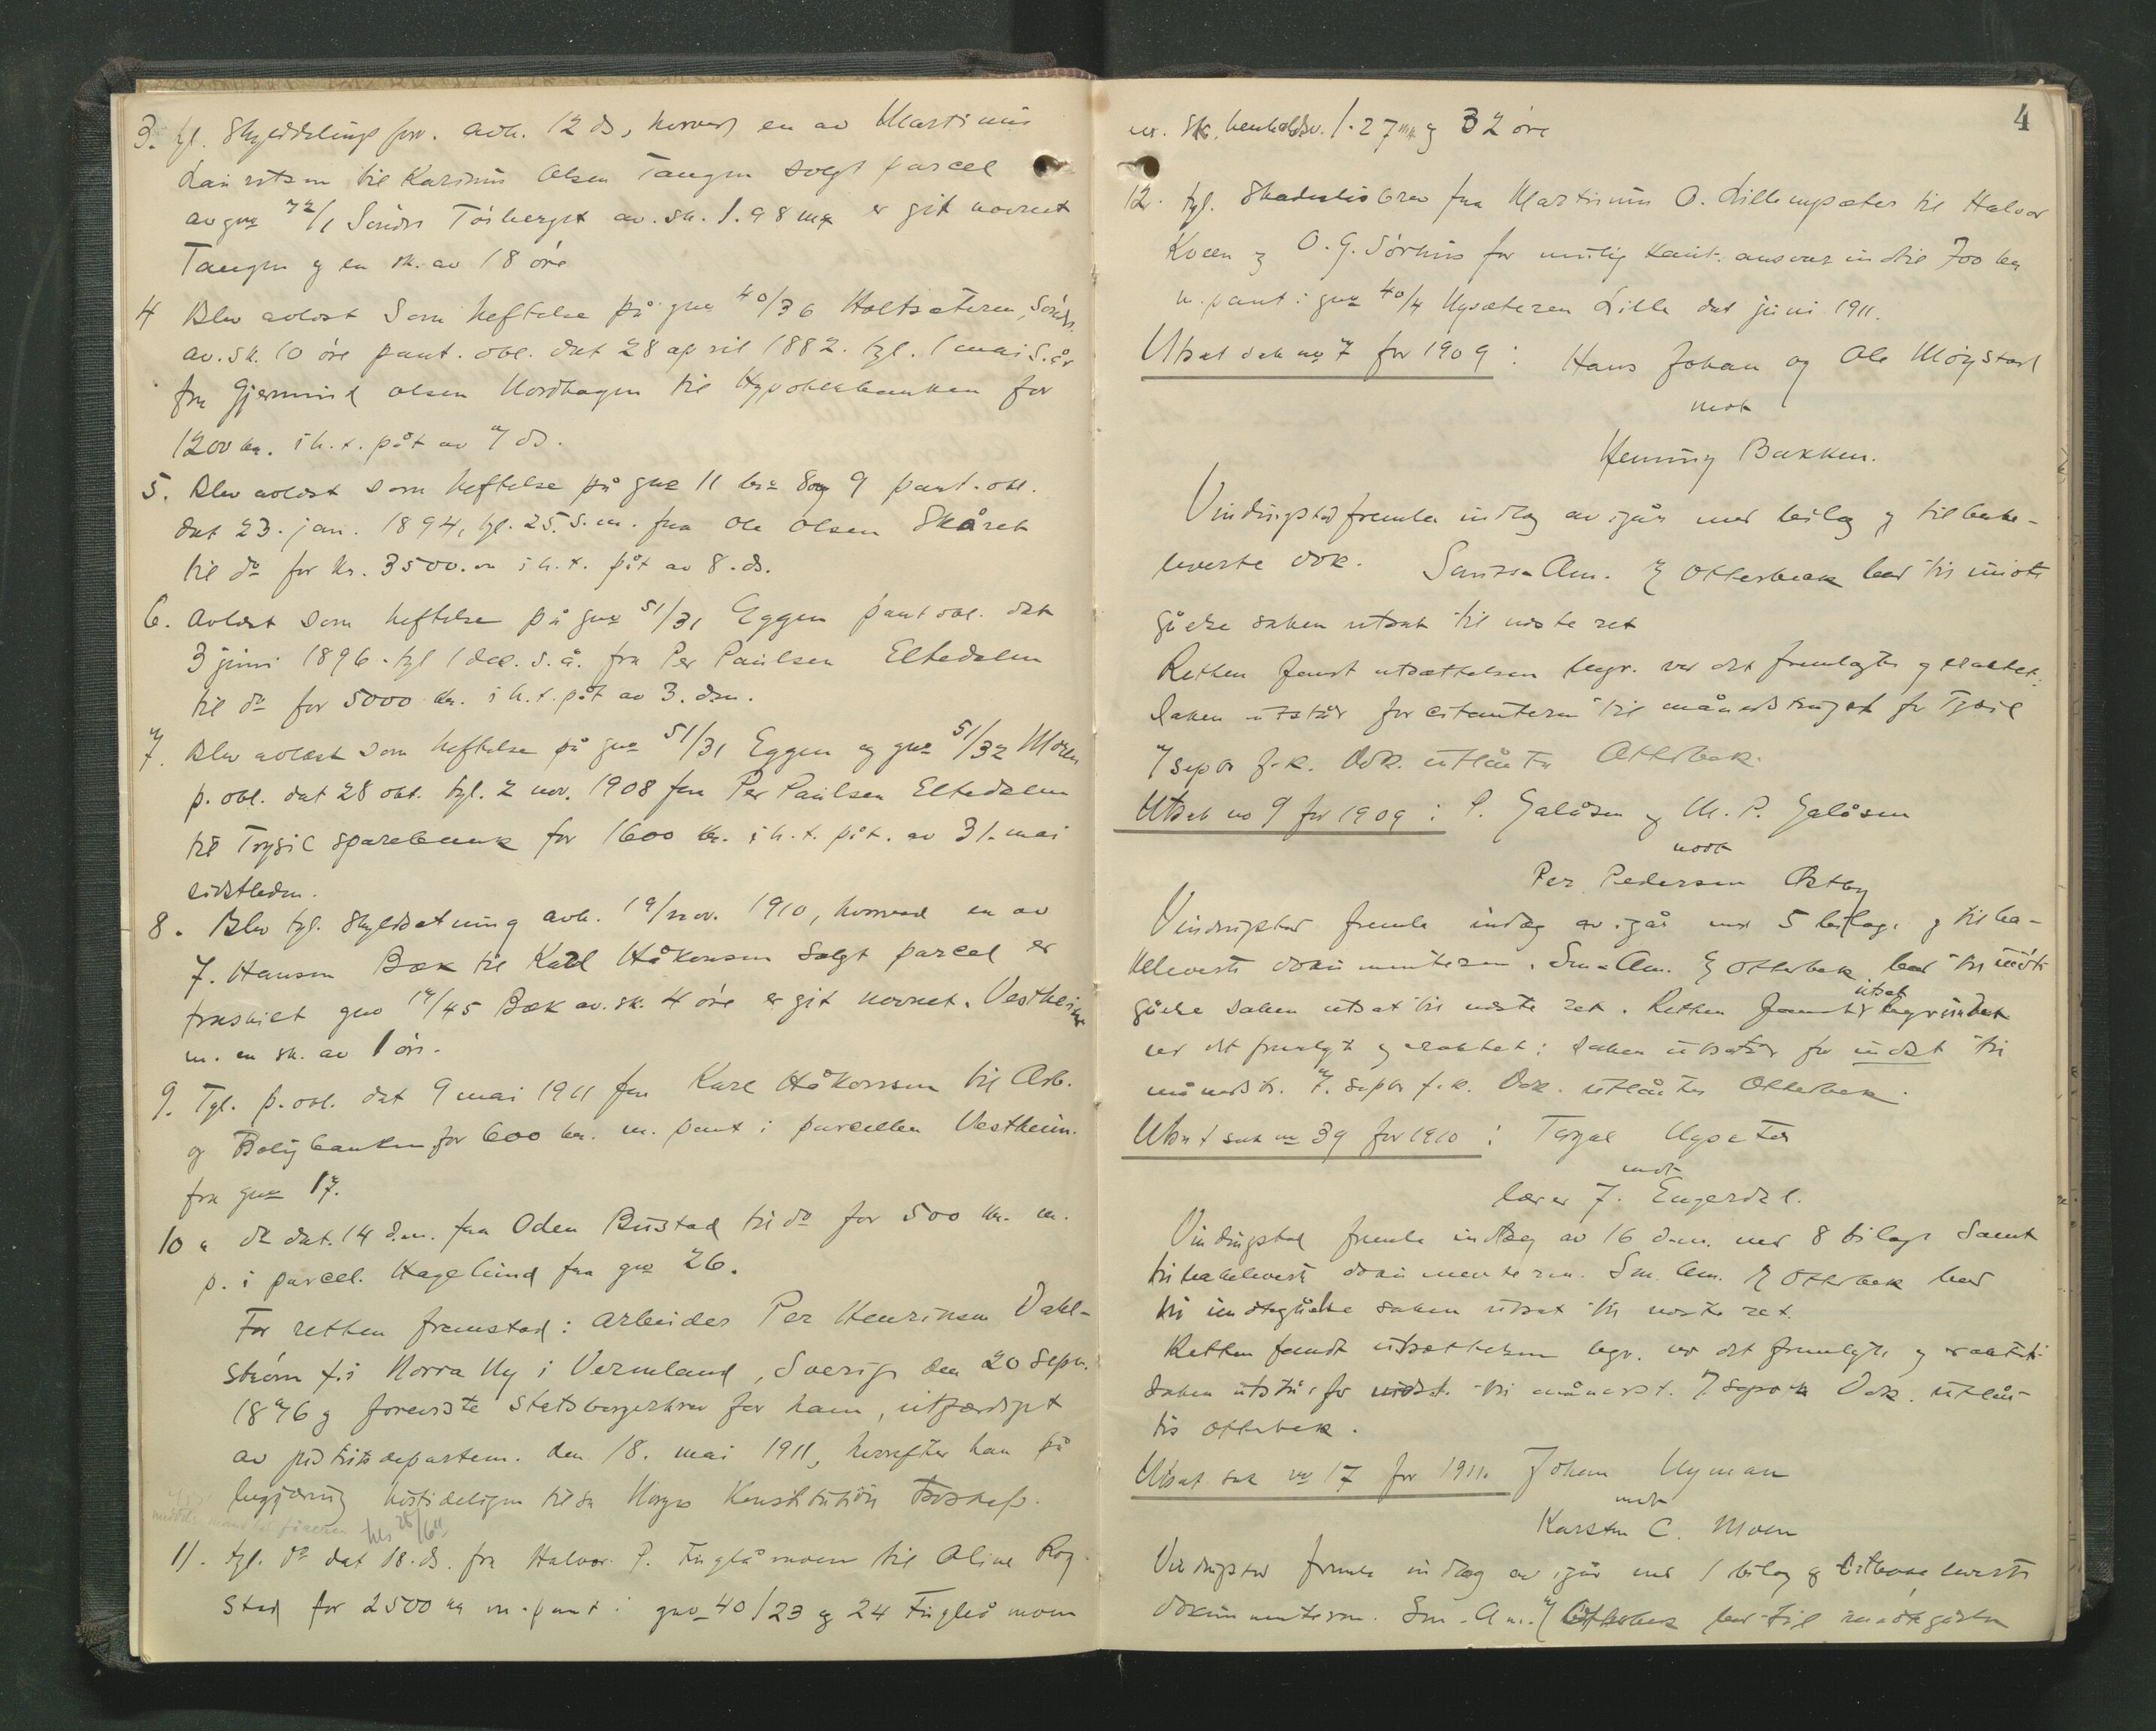 3. tgl. Skylddelings forr. avh. 12 ds, hvorved en av Martinus
Lauritsen til Karinus Olsen Tangen solgt parcel
av gno 72/1 Söndre Törberget av sk. 1.98 mk er git navnet
Tangen og en sk. av 18 öre
4 Blev avlæst som heftelse på gno 40/36 Holtsæteren, Söndr.
av sk. 10 öre pant. obl. dat 28 april 1882. tgl. 1 mai s. år
fra Gjermund Olsen Nordhagen til Hypotekbanken for
1200 kr. i h. t. påt av 7 ds.
5. Blev avlæst som heftelse på gno 11 bno 8 og 9 pant. obl.
dat 23. jan. 1894, tgl. 25. s. m. fra Ole Olsen Skåret
til do for kr. 3500. i h. t. påt av 8. ds.
6. Avlæst som heftelse på gno 51/31 Eggen pant obl. dat
3 juni 1896. tgl 1 dec. s. å. fra Per Paulsen Eltedalen
til do for 5000 kr. i h. t. påt av 3. dsm.
7. Blev avlæst som heftelse på gno 51/31 Eggen og gno 51/32 Moren
p. obl. dat 28 okt. tgl. 2 nov. 1908 fra Per Paulsen Eltedalen
til Trysil sparebank for 1600 kr. i h. t. påt. av 31. mai
sidstleden.
8. Blev tgl. skyldsætning avh. 19/nov. 1910, hvorved en av
J. Hansen Bæk til Karl Håkonsen solgt parcel er
fraskilt gno 17/45 Bæk av sk. 4 öre er git navnet. Vestheim
m. en sk. av 1 öre.
9. Tgl. p. obl. dat 9 mai 1911 fra Karl Håkonsen til Arb.
og Boligbanken for 600 kr. m. pant i parcellen Vestheim.
fra gno 17.
10 " do dat. 14 d.m. fra Oden Bustad til do for 500 kr. m.
p. i parcel. Hagelund fra gno 26.
For retten fremstod: Arbeider Per Henriksen Dahl-
ström f. i Norra Ny i Vermland, Sverige den 20 sepbr.
1876 og foreviste Statsborgerbrev for ham, utfærdiget
av justitsdepartem. den 18. mai 1911, hvorefter han på
begjæring höitideligen tilsa Norges Konstitution Troskap.
28/6 11
11. tgl. do dat 18. ds. fra Halvor P. Fuglåmoen til Oline Rog-
stad for 2500 kr m. pant i gno 40/23 og 24 Fuglåmoen
4
av sk. henholdsv. 1.27 mk og 32 öre
12. tgl. Skadeslösbrev fra Martinus O. Lillenysæter til Halvor
Kveen og O. G. Sörhus for mulig kaut. ansvar indtil 700 kr
m. pant i gno 40/4 Nysæteren Lille dat juni 1911.
Utsat sak no 7 for 1909: Hans Johan og Ole Möystad
mot
Henning Bakken.
Vindingstad fremla indlæg av igår med bilag og tilbake-
leverte dok. Samme Am. Otterbæk bad til imöte
gåelse saken utsat til næste ret
Retten fandt utsættelsen begr. ved det fremlagte og eraktet:
Saken utstår for citantern til månedstinget for Trysil
7 sepbr f. k. Dok. utlåntes Otterbek.
Utsat no 9 for 1909: P. Galåsen og M. P. Galåsen
mot
Per Pedersen Østby
Vindingstad fremla indlæg av igår med 5 bilag og tilba-
keleverte dokumenterne. Sm. Am. Otterbek bad til imöte
gåelse saken utsat til næste ret. Retten fandt utsæt begrundet
ved det fremlagte og eraktet: Saken utstår for indst til
månedst. 7. sepbr f. k. Dok. utlåntes Otterbek.
Utsat sak no 39 for 1910: Torgal Nysæter
mot
lærer J. Engerdal.
Vindingstad fremla indlæg av 16 dsm. med 8 bilag samt
tilbakeleverte dokumenterne. Sm. Am. Otterbek bad
til imötegåelse saken utsat til næste ret.
Retten fandt utsættelsen begr. ved det fremlagte og eraktet:
Saken utstår for indst. til månedst. 7. sepbr Dok. utlån-
tes Otterbek.
Utsat sak no 17 for 1911. Johan Nyman
mot
Karsten C. Moen
Vindingstad fremla indlæg av igår med 1 bilag og tilbakeleverte
dokumenterne. Sm. Am. Otterbek bad til imötegåelse